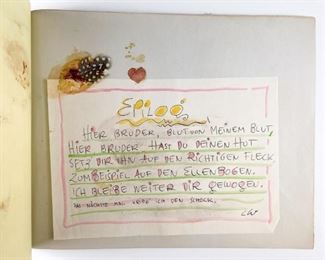 EPILOG
HIER BRUDER, BLUT VON MEINEM BLUT,
HIER BRUDER HAST DU DEINEN HUT
SETZ DIR IHN AUF DEN RICHTIGEN FLECK,
ZUM BEISPIEL AUF DEN ELLENBOGEN.
ICH BLEIBE WEITER DIR GEWOGEN.
DAS NÄCHSTE MAL ICH DEN SCHECK.